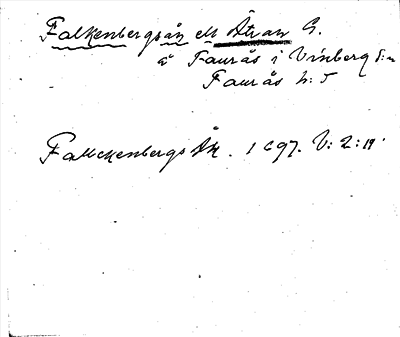 Falkenbergsån ell Ätran G.
å Faurås i Vinberg s:n
Faurås h: t
Falckenbergs Åh. 1697. V: 2: 19.